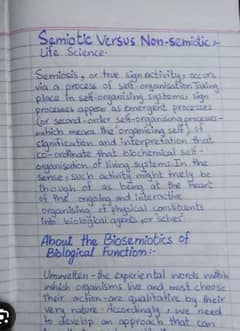 Semiotic Versus Non-semiotic :-
Life Science.
Semiosis, or true sign activity, occurs
via a process of self-organisation Taking
place in self-organising systems: sign
processes appear as emergent processes
(or second-order self-organising processes-
which means the organising self) of
signification and interpretation that
co-ordinate that biochemical self-
organisation of living systems. In the
sense, such activity might truely be
though of as being at the heart
of the ongoing and interactive
organising of physical constituents
into biological agents, or 'selves'
About the Biosemiotics of
Biological function:-
Umwelten - the experiental words within
which organisms live and must choose
their action - are qualitative by their
very nature. Accordingly, we need
to develop an approach that can